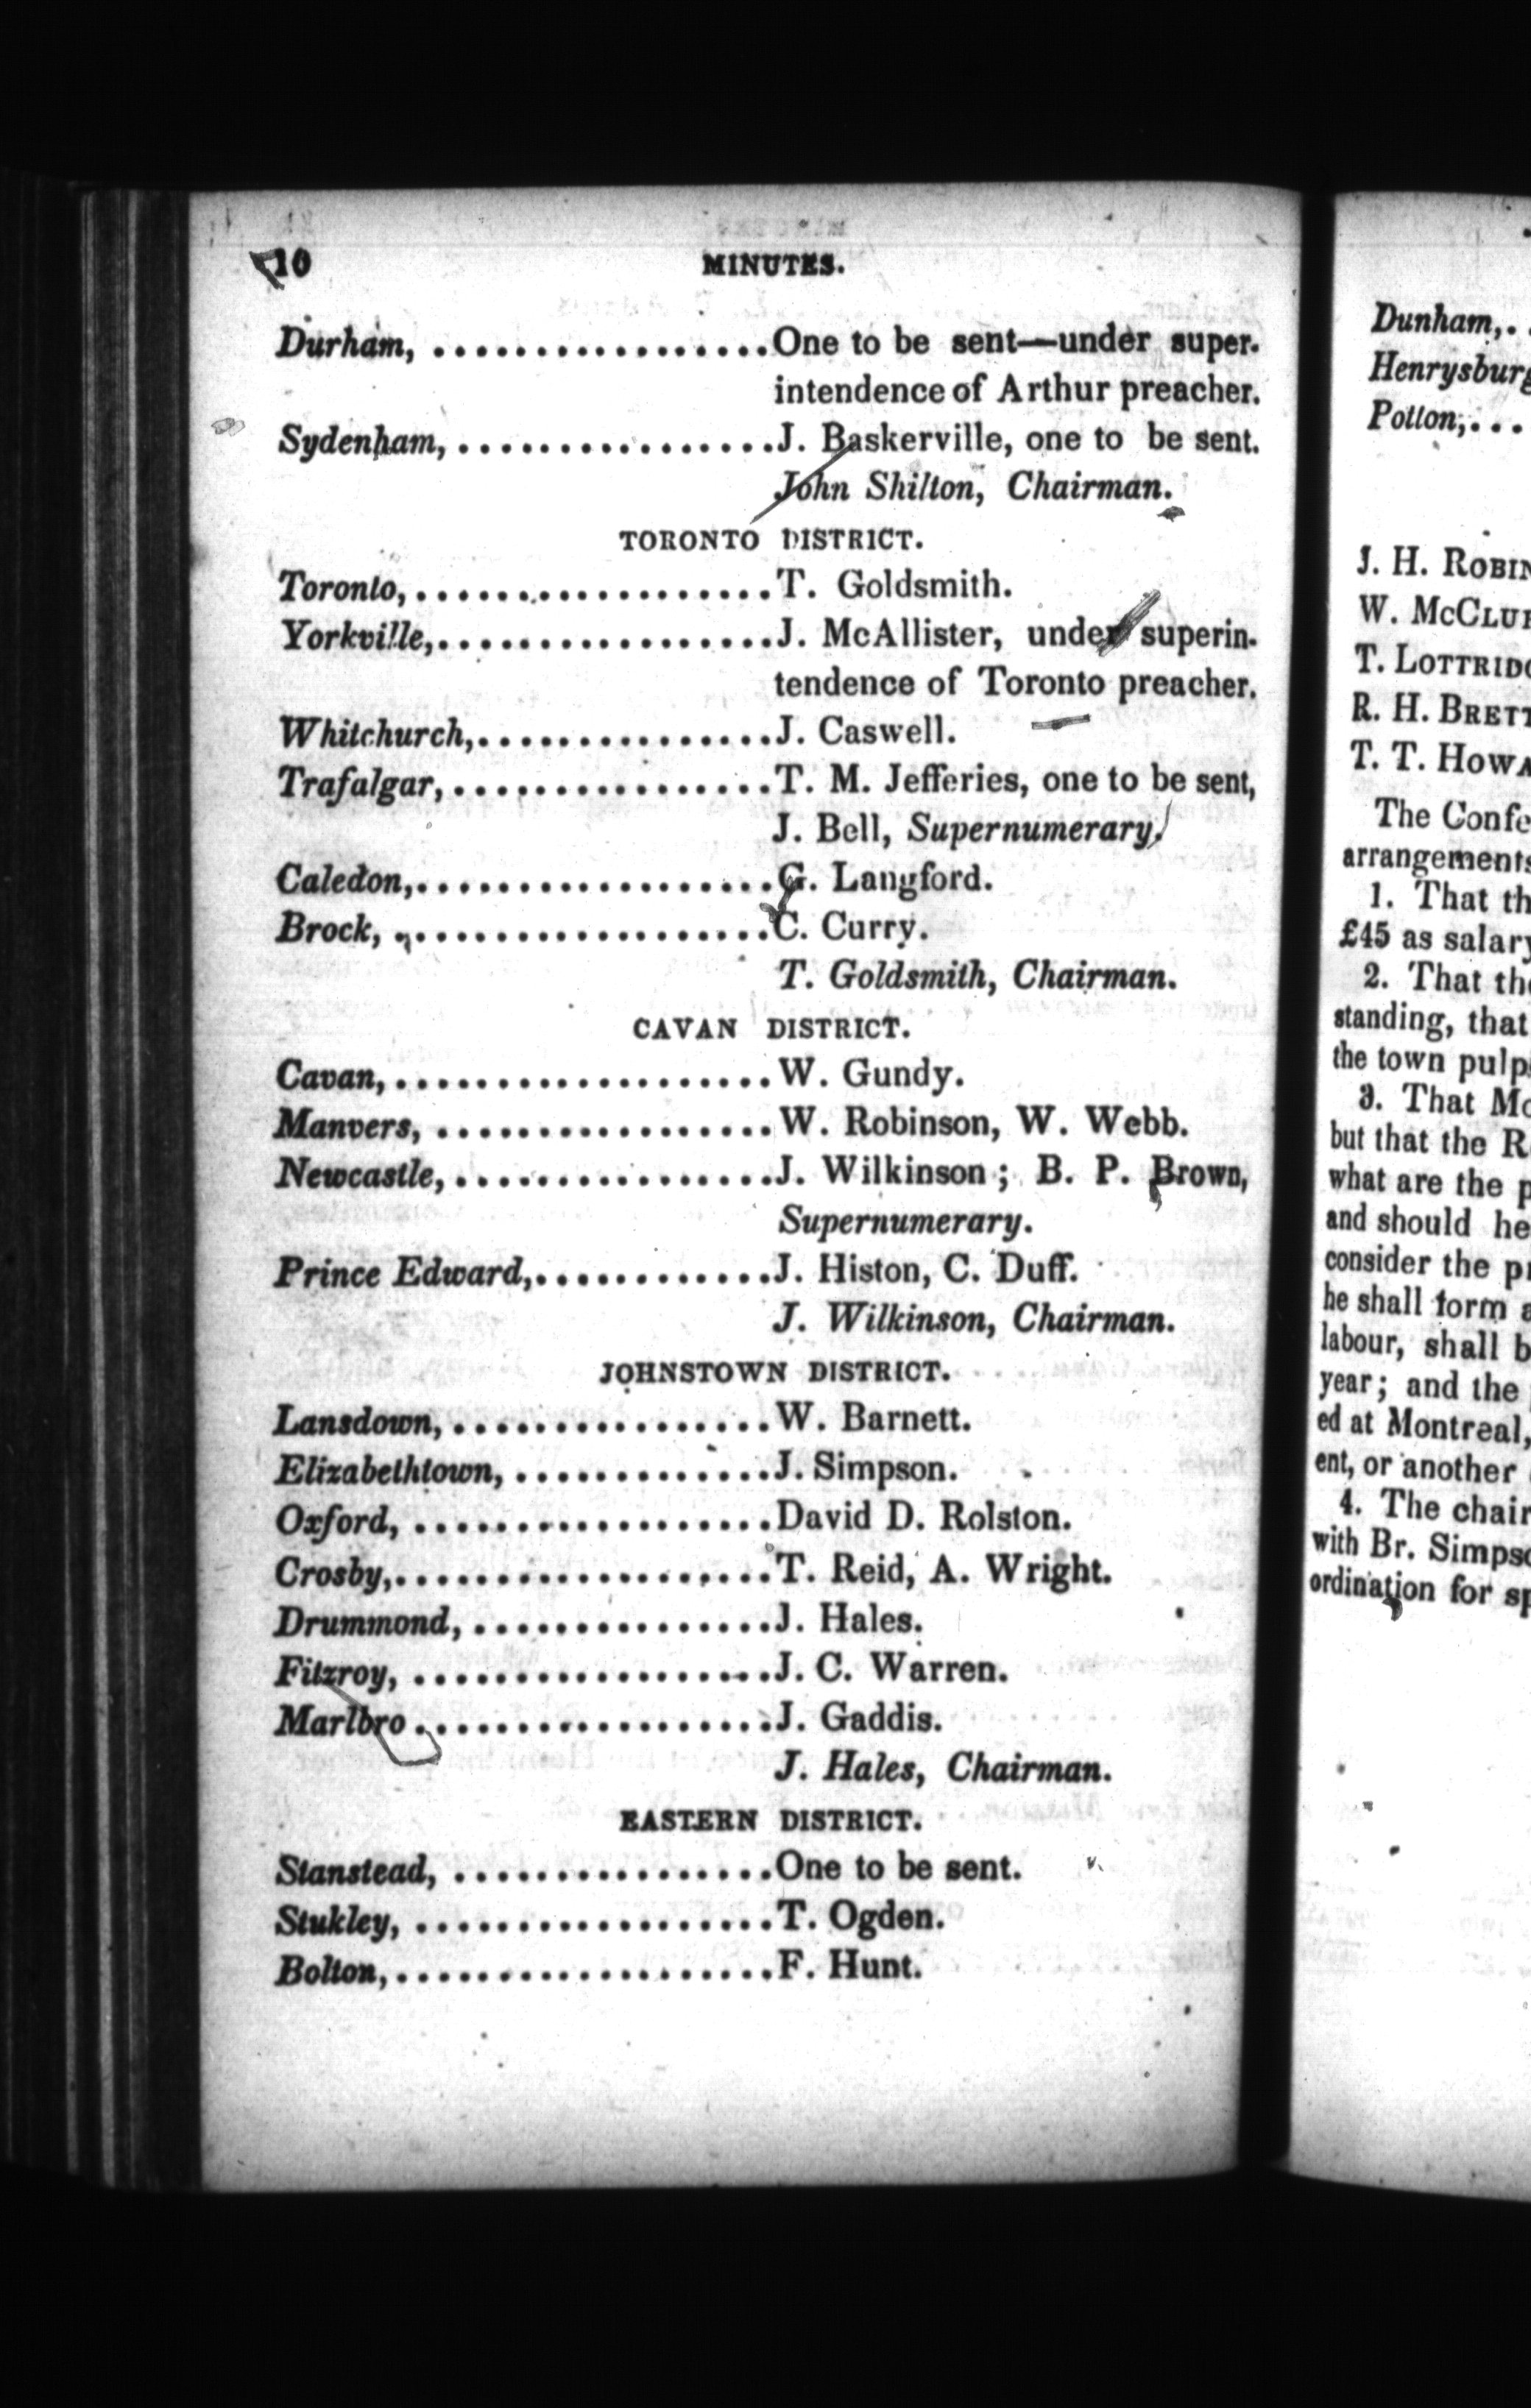 10 MINUTES.
Durham, .................One to be sent—under super-
intendence of Arthur preacher.
Sydenham, ................J. Baskerville, one to be sent.
John Shilton, Chairman.
TORONTO DISTRICT.
Toronto, ..................T. Goldsmith.
Yorkville, .................J. McAllister, under superin-
tendence of Toronto preacher.
Whitchurch, ...............J. Caswell.
Trafalgar, ................T. M. Jefferies, one to be sent,
J. Bell, Supernumerary.
Caledon, ..................G. Langford.
Brock, ...................C. Curry.
T. Goldsmith, Chairman.
CAVAN DISTRICT.
Cavan, ...................W. Gundy.
Manvers, .................W. Robinson, W. Webb.
Newcastle, ................J. Wilkinson; B. P. Brown,
Supernumerary.
Prince Edward, ............J. Histon, C. Duff.
J. Wilkinson, Chairman.
JOHNSTOWN DISTRICT.
Lansdown, ................W. Barnett.
Elizabethtown, .............J. Simpson.
Oxford, ..................David D. Rolston.
Crosby, ...................T. Reid, A. Wright.
Drummond, ...............J. Hales.
Fitzroy, ..................J. C. Warren.
Marlbro ..................J. Gaddis.
J. Hales, Chairman.
EASTERN DISTRICT.
Stanstead, ................One to be sent.
Stukley, ..................T. Ogden.
Bolton, ...................F. Hunt.
Dunham, ..
Potton, ...
J. H.
W.
T.
R. H.
T. T.
The
1. That
£45 as
2. That
standing, that
the town
3. That
but that the
what are the
and should he
consider the
he shall form
labour, shall
year; and the
ed at Montreal,
ent, or another
4. The
with Br.
ordination for